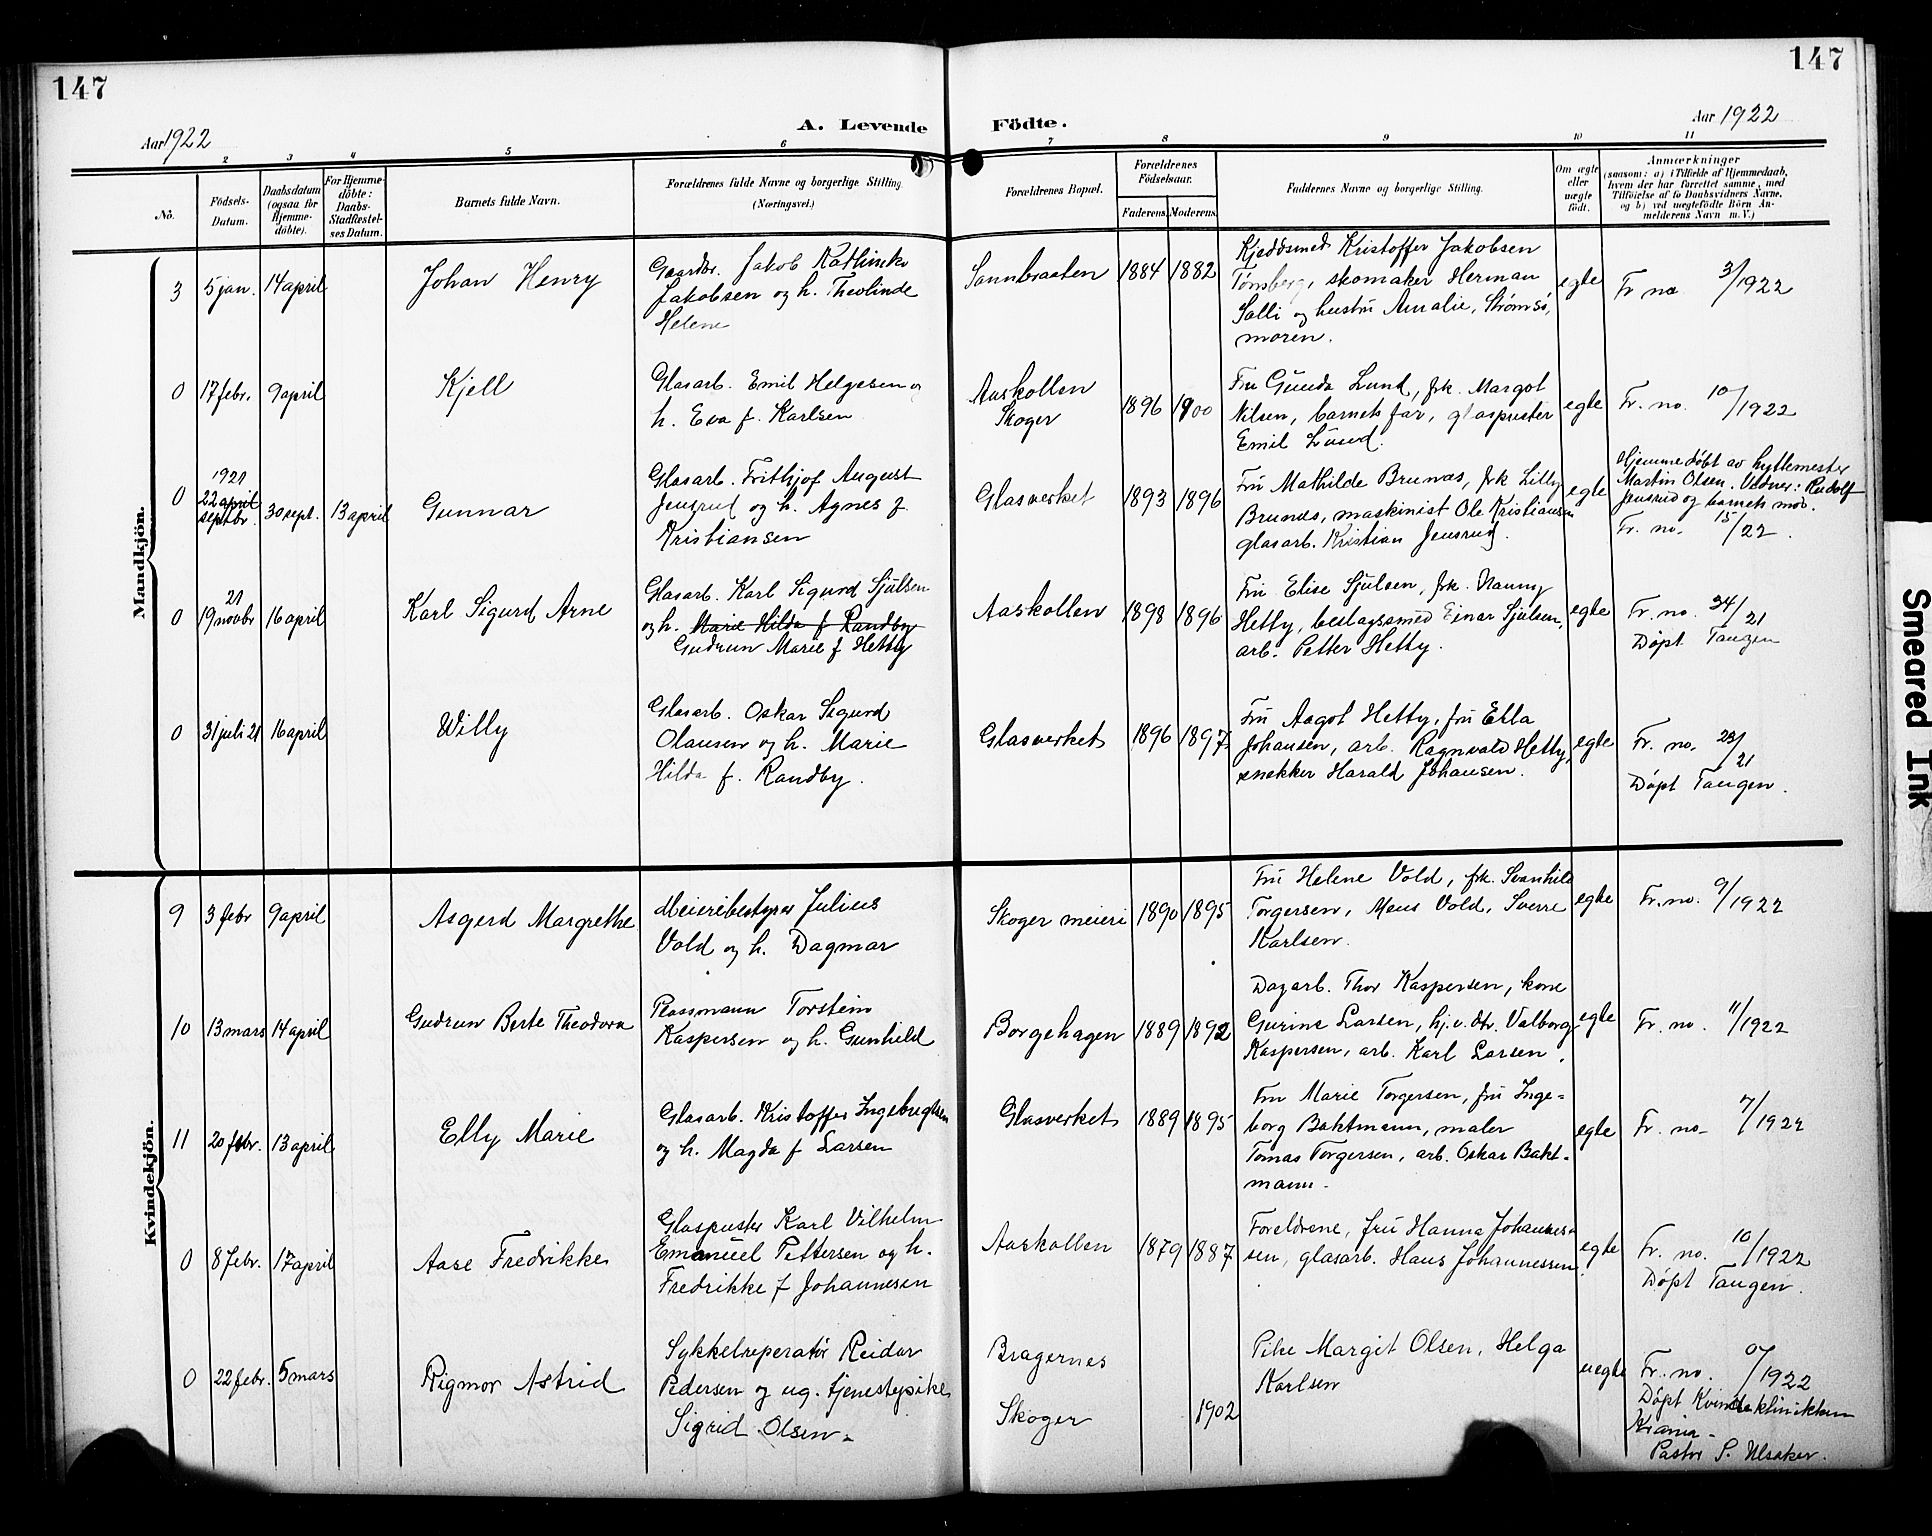 147
147
Aar 1922
A. Levende Födte.
Aar 1922
2 3 4 5 6 7 8 9 10 11
No.
Födsels-Datum.
Daabsdatum (ogsaa for Hjemme-döbte).
For Hjemme-döbte: Daabs-Stadfæstel-ses Datum.
Barnets fulde Navn.
Forældrenes fulde Navne og borgerlige Stilling (Næringsvei.)
Forældrenes Bopæl.
Forældrenes Födselsaar.
Faderens. Moderens.
Faddernes Navne og borgerlige Stilling.
Om ægte eller uægte födt.
Anmærkninger
(saasom: a) i Tilfælde af Hjemmedaab,
hvem der har forrettet samme, med
Tilföielse af to Daabsvidners Navne,
og b) ved uægtefödte Börn An-
melderens Navn m. V.)
Mandkjön.
3 5 jan. 14 april
Johan Henry
Gaardbr. Jakob
Jakobsen og h. Theolinde
Helene
Sannbraaten 1884 1882
Kjeddsmed Kristoffer Jakobsen
Tønsberg, skomaker Herman
Solli og hustru Amalie, Strømsø,
moren.
egte
Fr no 3/1922
0 17 febr. 9 april
Kjell
Glasarb. Emil Helgesen og
h. Eva f. Karlsen
Aaskollen
Skoger
1896 1900
Fru Gunda Lund, frk. Margot
Nilsen, barnets far, glaspuster
Emil Lund.
egte
Fr. no. 10/1922
0 1921
22 april
septbr. 30 sept. 13 april
Gunnar
Glasarb. Frithjof August
Jensrud og h. Agnes f.
Kristiansen
Glasverket 1893 1896
Fru Mathilde Brunæs, frk Lilly
Brunæs, maskinist Ole Kristiansen
glasarb. Kristian Jensrud.
egte
Hjemmedøbt av hyttemester
Martin Olsen. Vidner: Rudolf
Jensrud og barnets mor.
Fr. no. 15/22.
0 21
19 novbr 16 april
Karl Sigurd Arne
Glasarb. Karl Sigurd Sjulsen
og h. Marie Hilda f Randby
Gudrun Marie f Hetty
Aaskollen 1898 1896
Fru Elise Sjulsen, frk. Nanny
Hetty, beslagssmed Einar Sjulsen,
arb. Petter Hetty.
egte
Fr. no. 34/21
Døpt Tangen
0 31 juli 21 16 april
Willy
Glasarb. Oskar Sigurd
Olausen og h. Marie
Hilda f. Randby.
Glasverket 1896 1897
Fru Aagot Hetty, fru Ella
Johansen, arb. Ragnvald Hetty,
snekker Harald Johansen.
egte
Fr. no. 23/21
Døpt Tangen.
Kvindekjön.
9 3 febr 9 april
Asgerd Margrethe
Meieribestyrer Julius
Vold og h. Dagmar
Skoger meieri 1890 1895
Fru Helene Vold, frk. Svanhild
Torgersen, Mens Vold, Sverre
Karlsen.
egte
Fr. no. 9/1922
10 13 mars 14 april
Gudrun Berte Theodora
Plassmann Torstein
Kaspersen og h. Gunhild
Borgehagen 1889 1892
Dagarb. Thor Kaspersen, kone
Gurine Larsen, hj.v. dtr. Valborg
Kaspersen, arb. Karl Larsen.
egte
Fr. no. 11/1922
11 20 febr. 13 april
Elly Marie
Glasarb. Kristoffer Ingebregtsen
og h. Magda f Larsen
Glasverket 1889 1895
Fru Marie Torgersen, fru Inge-
borg Baktmann, maler
Tomas Torgersen, arb. Oskar Bakt-
mann.
egte
Fr. no. 7/1922
0 8 febr. 17 april
Aase Fredrikke
Glaspuster Karl Vilhelm
Emanuel Pettersen og h.
Fredrikke f Johannesen
Aaskollen 1879 1887
Foreldrene, fru Hanna Johannes-
sen, glasarb. Hans Johannessen.
egte
Fr. no. 10/1922
Døpt Tangen.
0 22 febr. 5 mars
Rigmor Astrid
Sykkelreperatør Reidar
Pedersen og ug. tjenestepike
Sigrid Olsen.
Bragernes
Skoger
1902
Pike Margit Olsen, Helga
Karlsen
uegte
Fr. no. 0/1922
Døpt Kvindeklinikken
Kr.ania.
Pastor S. Ulsaker.
Smeared Ink